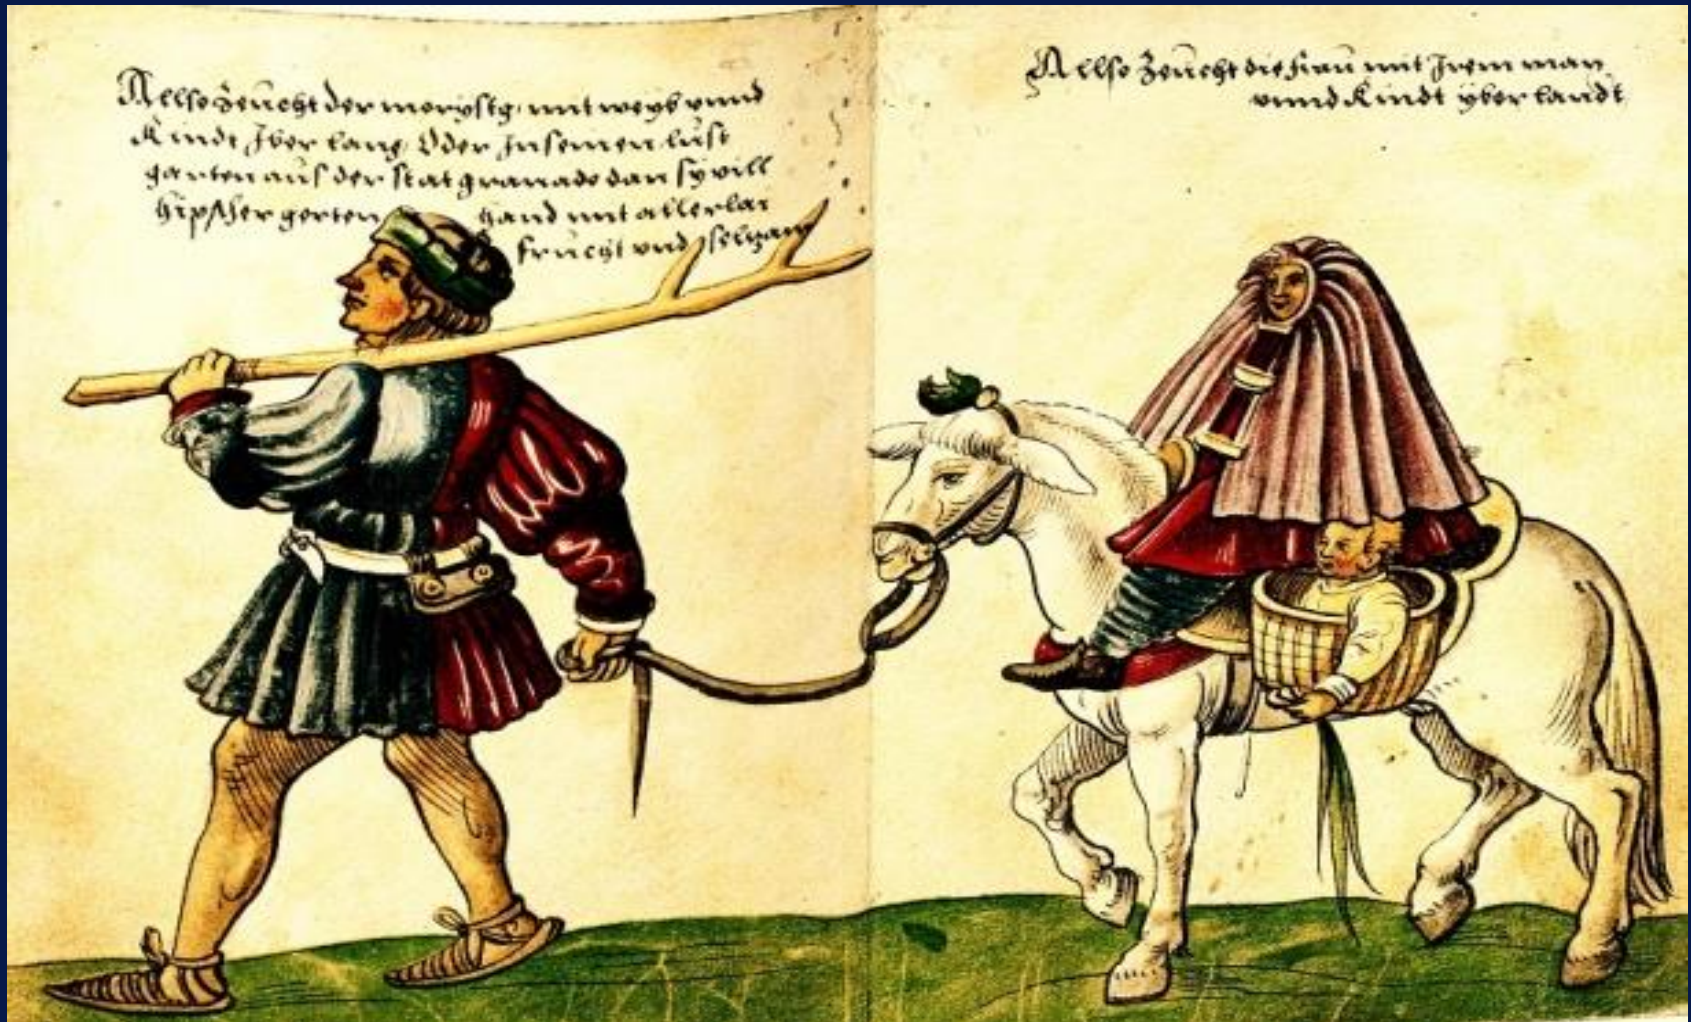 Allso zeücht der morystg mit weyb vnnd
Kindt Jber lanng Oder Jn seinen lust
garten aus der stat granado dan sy vill
hipsher gerten hand mit allerlai
frücht vnd selzam
Allso zeücht die frau mit Jrem man
vnnd Kindt yber landt